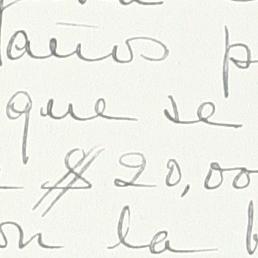 años p
que se
$20,00
on la b